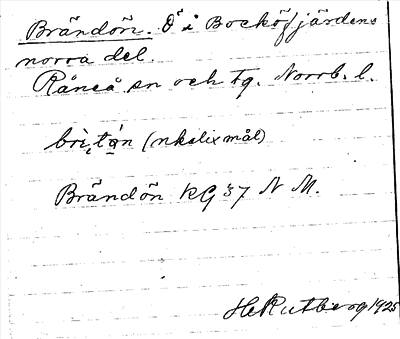 Brändön. Ö i Bocköfjärdens
norra del.
Råneå sn och tg. Norrb. l.
(nkalixmål)
Brändön KG 37 N M.
H Rutberg 1925